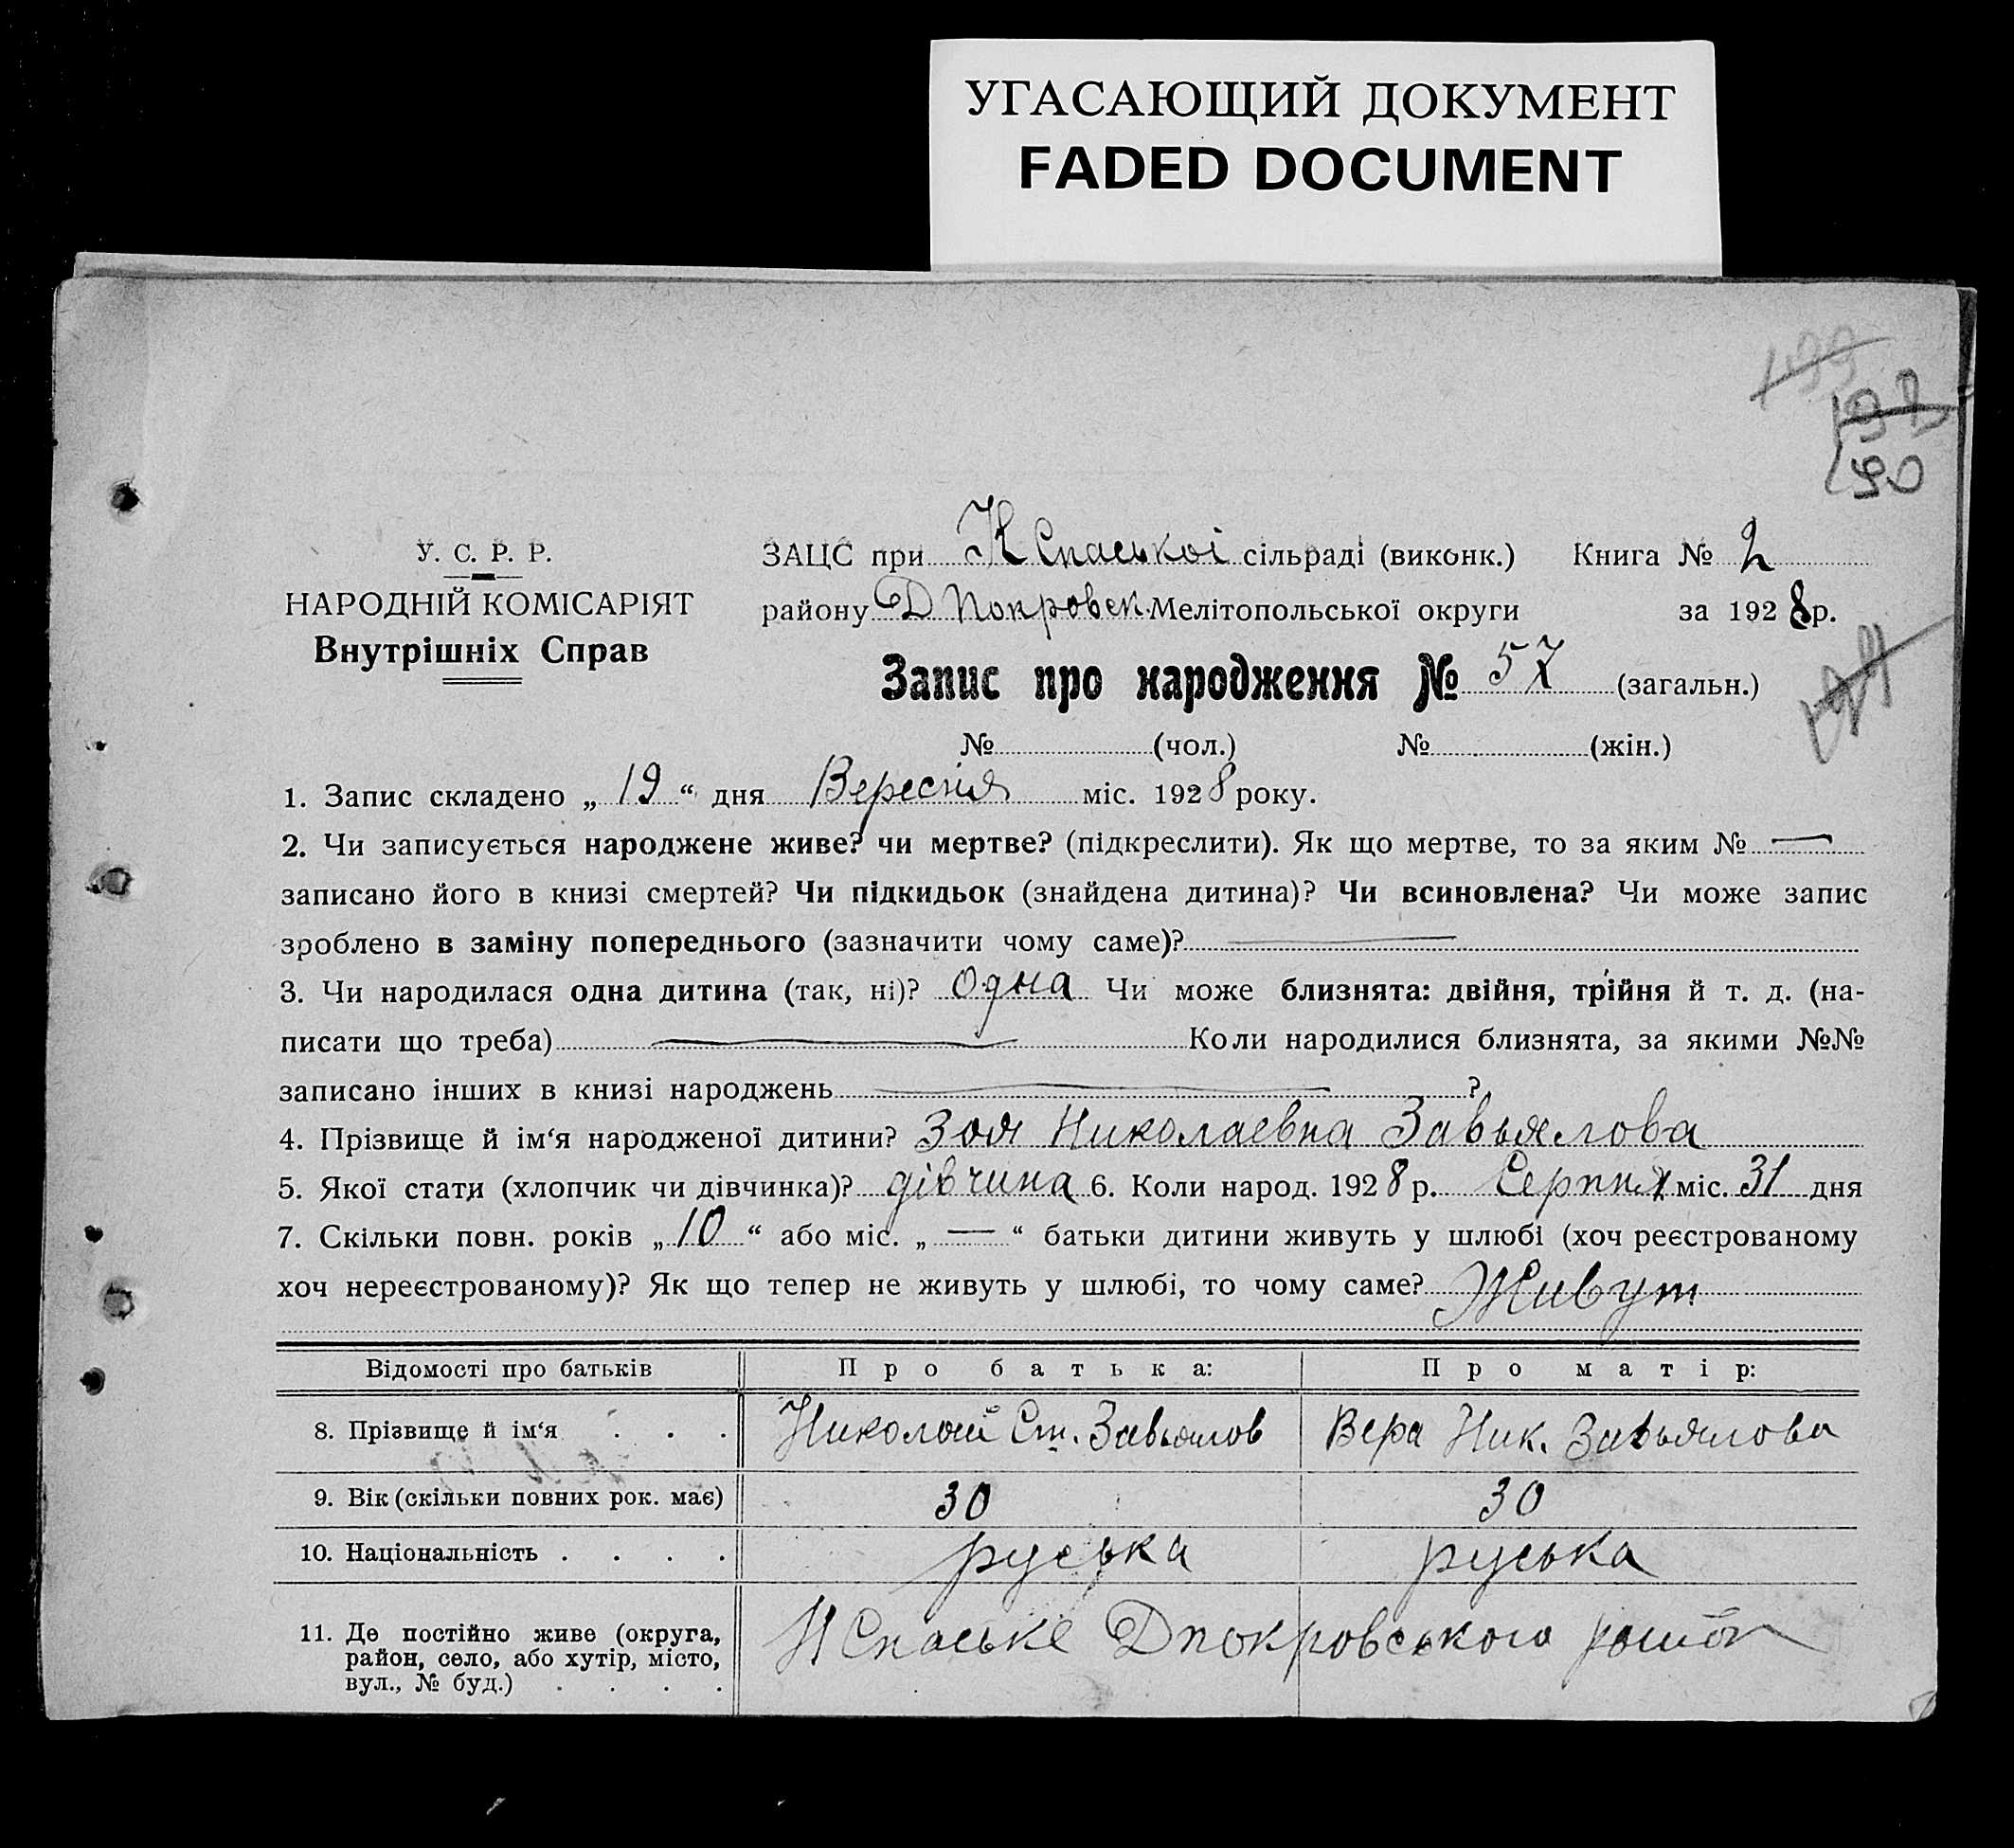 УГАСАЮЩИЙ ДОКУМЕНТ
FADED DOCUMENT
190
У. С. Р. Р.
НАРОДНІЙ КОМІСАРІЯТ
Внутрішніх Справ
ЗАЦС при Н Спаської сільраді (виконк.) Книга № 2
району Д Покровск. Мелітопольської округи за 1928 р.
Запис про народження № 57 (загальн.)
№ (чол.) № (жін.)
1. Запис складено „ 19 “ дня Вересня міс. 1928 року.
2. Чи записується народжене живе? чи мертве? (підкреслити). Як що мертве, то за яким № —
записано його в книзі смертей? Чи підкидьок (знайдена дитина)? Чи всиновлена? Чи може запис
зроблено в заміну попереднього (зазначити чому саме)? —
3. Чи народилася одна дитина (так, ні)? Одна Чи може близнята: двійня, трійня й т. д. (на-
писати що треба) — Коли народилися близнята, за якими №№
записано інших в книзі народжень — ?
4. Прізвище й ім‘я народженої дитини? Зоя Николаевна Завьялова
5. Якої стати (хлопчик чи дівчинка)? дівчина 6. Коли народ. 1928 р. Серпня міс. 31 дня
7. Скільки повн. років „ 10 “ або міс. „ — “ батьки дитини живуть у шлюбі (хоч реєстрованому
хоч нереєстрованому)? Як що тепер не живуть у шлюбі, то чому саме? Живут
Відомості про батьків Про батька: Про матір:
8. Прізвище й ім‘я . . . Николай Ст. Завьялов Вера Ник. Завьялова
9. Вік (скільки повних рок. має) 30 30
10. Національність . . . . руська руська
11. Де постійно живе (округа,
район, село, або хутір, місто,
вул., № буд.) . . . .
Н Спаське Дпокровського район